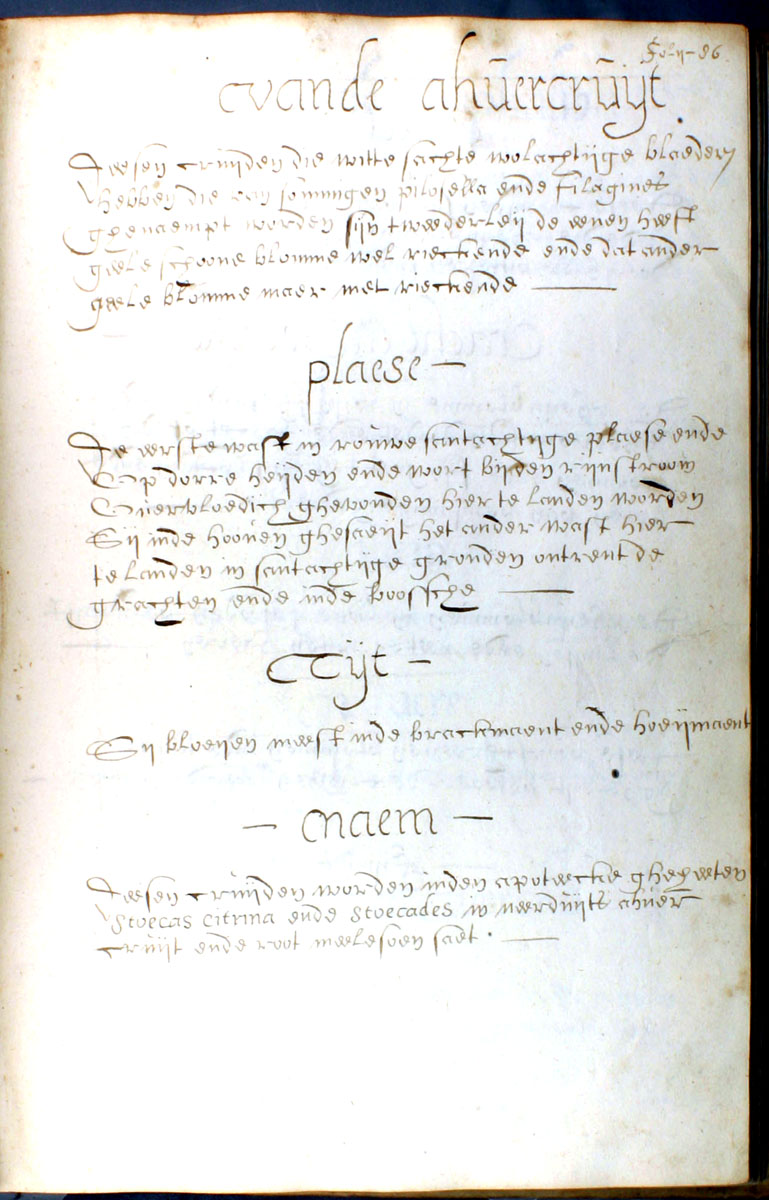 Foly 86
vande ahuercruijt
Deesen cruijden die witte sachte wolachtijge blaederen
hebben die van sommigen pilosella ende filagines
ghenaempt worden sijn tweederleij de eenen heeft
geele schoone blomme wel rieckende ende dat ander
geele blomme maer niet rieckende
plaese
De eerste wast in rouwe santachtijge plaese ende
Op dorre heijden ende wort bijden rijnstroom
Overvloedich ghevonden hier te landen worden
Sij inde hooven ghesaeijt het ander wast hier
te landen in santachtijge gronden ontrent de
grachten ende inde boossche
Tijt
Sij bloeijen meest inde brackmaent ende hoeijmaent
naem
Deesen cruijden worden inden apoteecke gheheeten
Stoecas Citrina ende Stoecades in neerduijts ahuer
cruijt ende root meelesoen saet